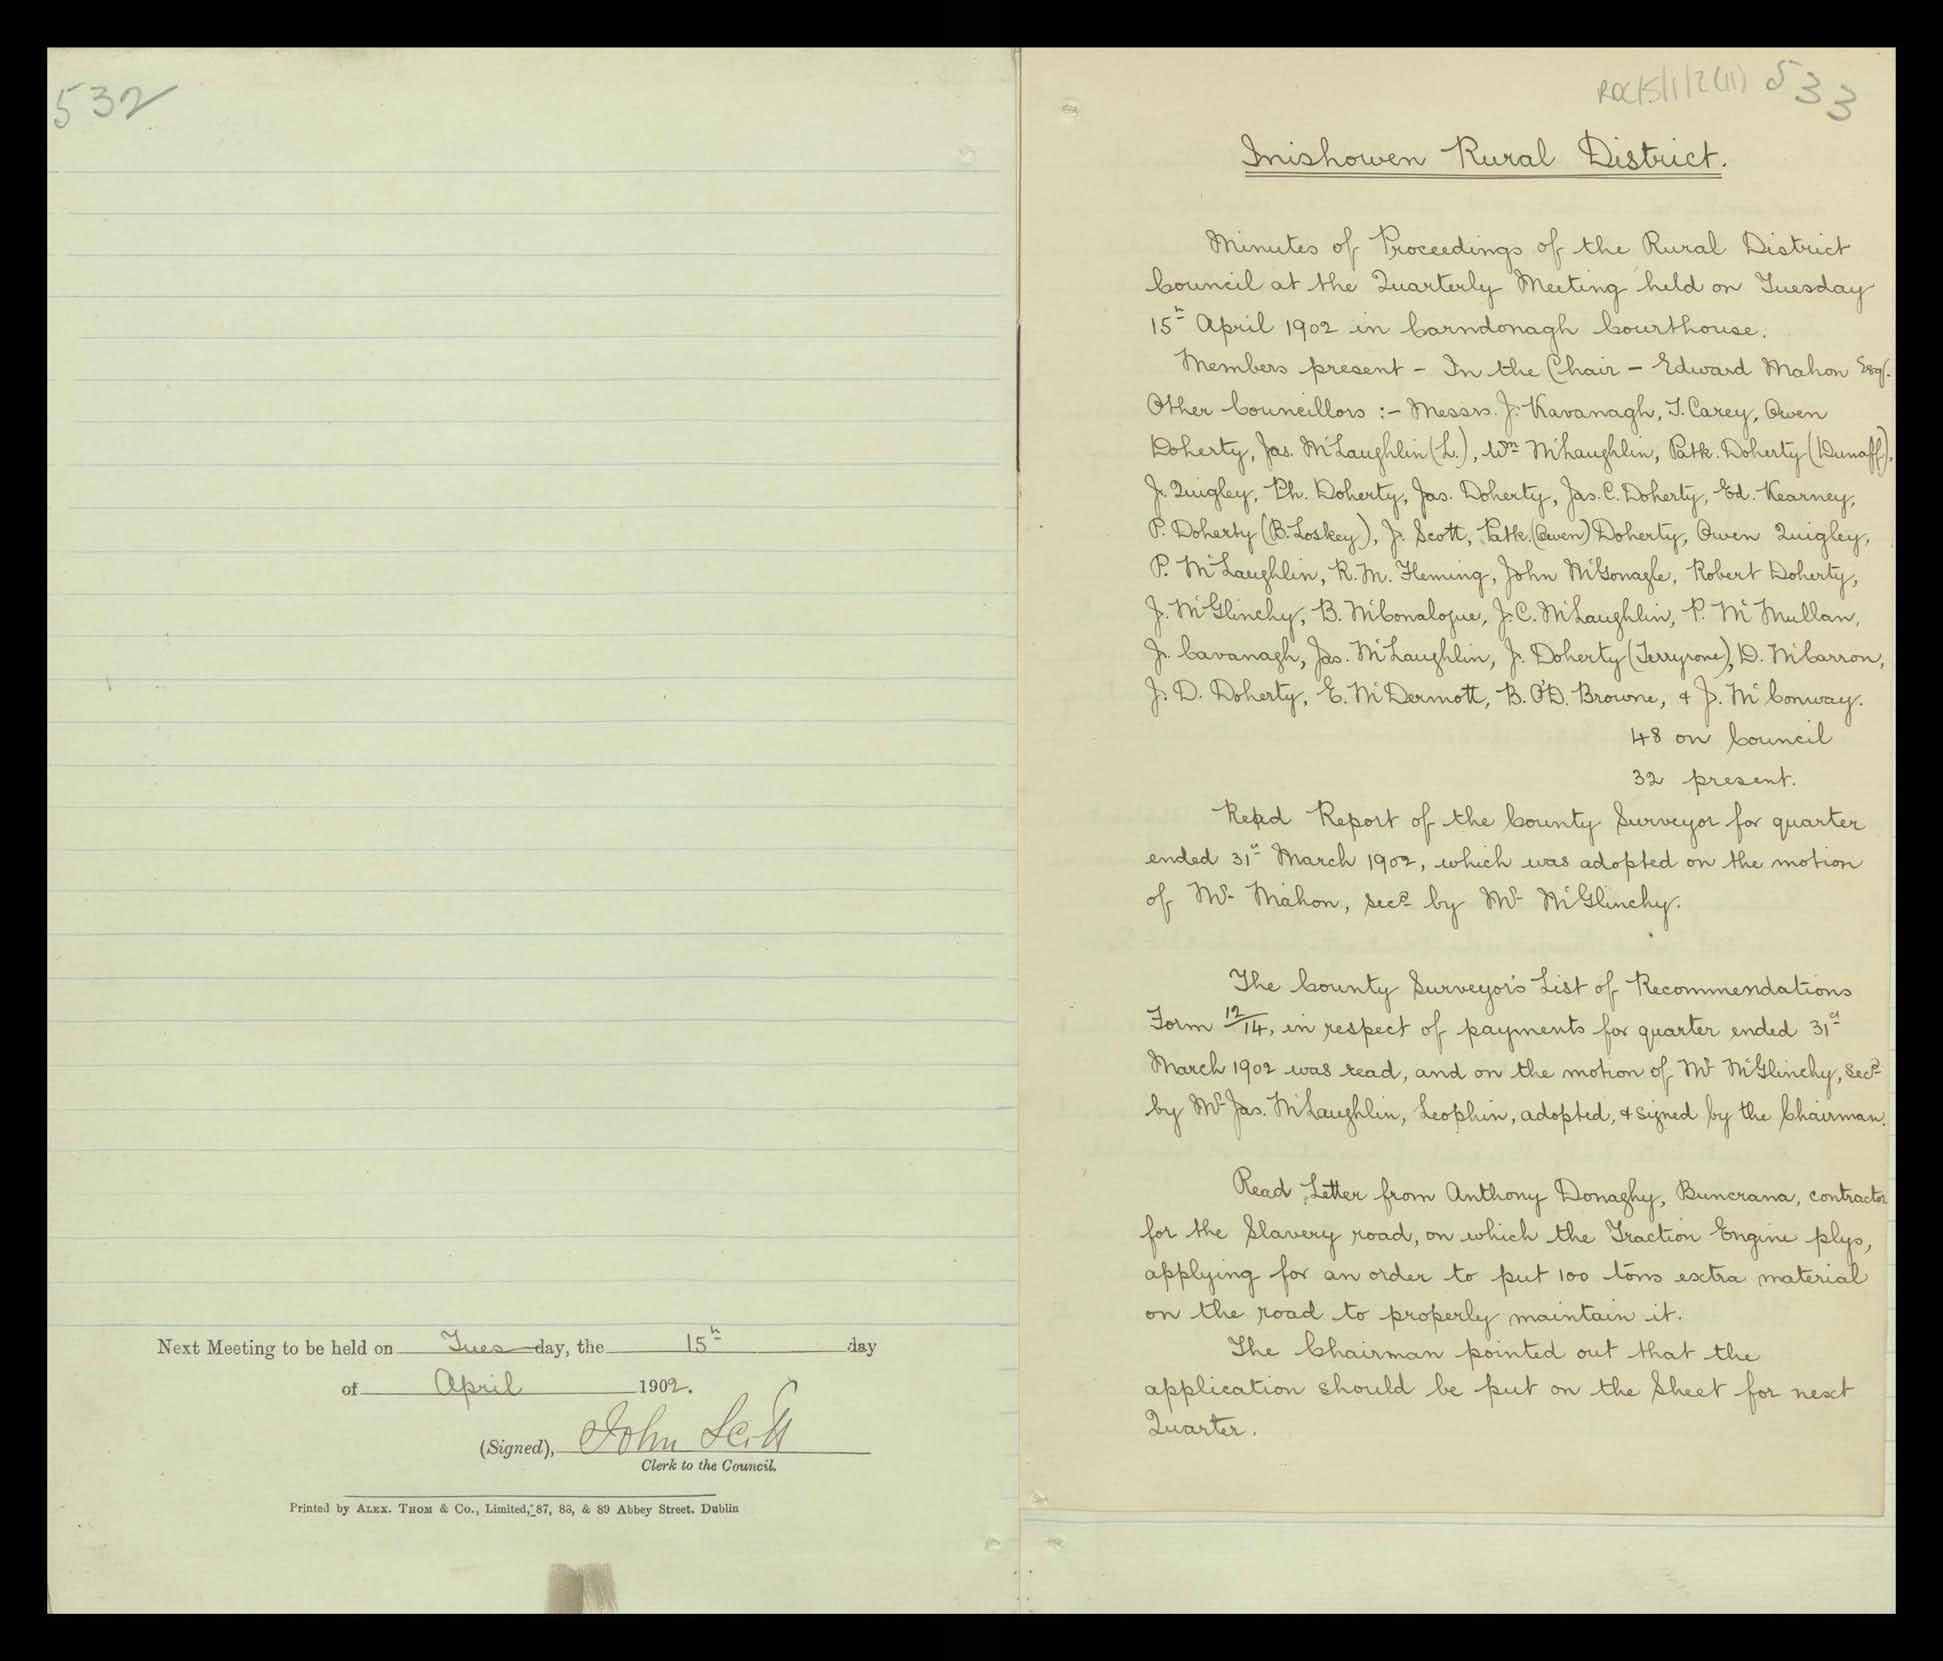 532
Next Meeting to be held on Tuesday, the 15th day
of April 1902.
(Signed), John Scott
Clerk to the Council.
Printed by ALEX. THOM & Co., Limited, 87, 88, & 89 Abbey Street. Dublin
RDC/5/1/2(11) 533
Inishowen Rural District.
Minutes of Proceedings of the Rural District
Council at the Quarterly Meeting held on Tuesday
15th April 1902 in Carndonagh Courthouse.
Members present - In the Chair - Edward Mahon Esq.
Other Councillors :- Messrs. J. Kavanagh, T. Carey, Owen
Doherty, Jas. McLaughlin (L.), Wm McLaughlin, Patk. Doherty (Dunaff),
J. Quigley, Ph. Doherty, Jas. Doherty, Jas. C. Doherty, Ed. Kearney,
P. Doherty (B. Loskey), J. Scott, Patk. (Owen) Doherty, Owen Quigley,
P. McLaughlin, R. M. Fleming, John McGonagle, Robert Doherty,
J. McGlinchy, B. McConalogue, J. C. McLaughlin, P. McMullan,
J. Cavanagh, Jas. McLaughlin, J. Doherty (Terryrone), D. McCarron,
J. D. Doherty, E. McDermott, B. O'D. Browne, & J. McConway.
48 on Council
32 present.
Read Report of the County Surveyor for quarter
ended 31st March 1902, which was adopted on the motion
of Mr Mahon, secd by Mr McGlinchy.
The County Surveyor's List of Recommendations
Form 12/14, in respect of payments for quarter ended 31st
March 1902 was read, and on the motion of Mr McGlinchy, secd
by Mr Jas. McLaughlin, Leophin, adopted, & signed by the Chairman.
Read Letter from Anthony Donaghy, Buncrana, contractor
for the Slavery road, on which the Traction Engine plys,
applying for an order to put 100 tons extra material
on the road to properly maintain it.
The Chairman pointed out that the
application should be put on the Sheet for next
Quarter.